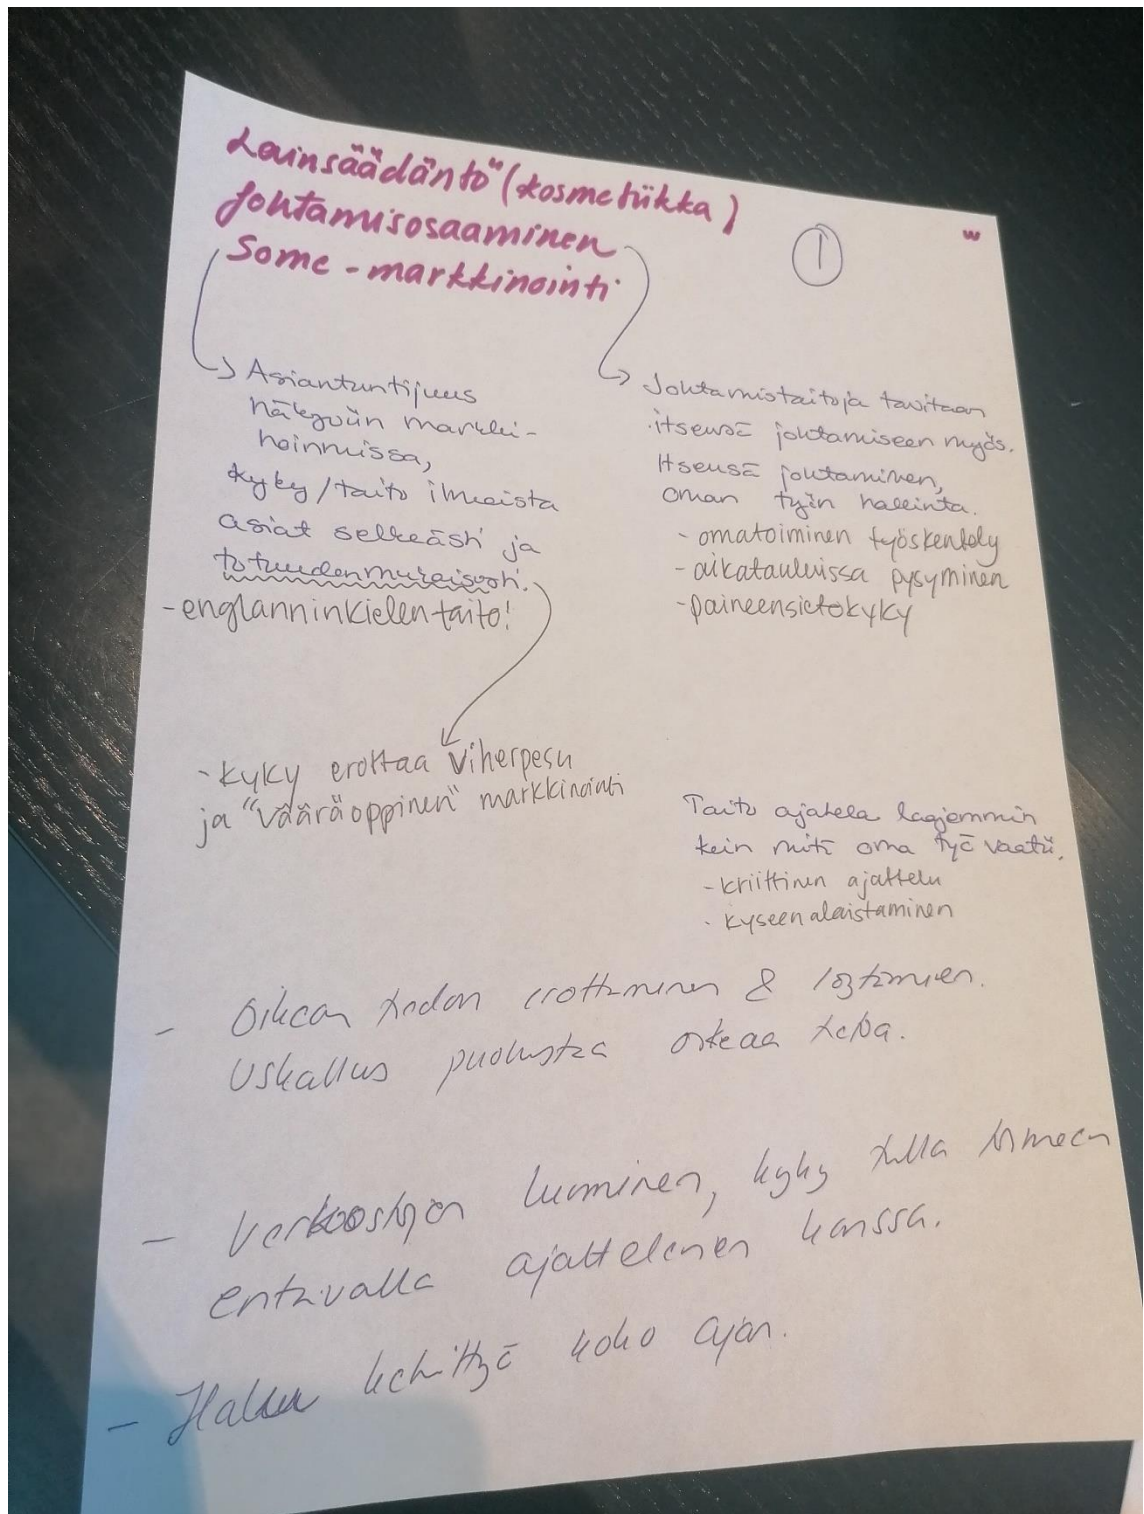 Lainsäädäntö (kosmetiikka)
Johtamisosaaminen
Some-markkinointi
①
w
Asiantuntijuus
näkyviin markki-
noinnissa,
kyky/taito ilmaista
asiat selkeästi ja
totuudenmukaisesti.
- englanninkielen taito!
- kyky erottaa viherpesu
ja "vääräoppinen" markkinointi
Johtamistaitoja tarvitaan
itsensä johtamiseen myös.
Itsensä johtaminen,
oman työn hallinta.
- omatoiminen työskentely
- aikatauluissa pysyminen
- paineensietokyky
Taito ajatella laajemmin
kuin mitä oma työ vaatii.
- kriittinen ajattelu
- kyseenalaistaminen
- Oikean tiedon erottaminen &
Uskallus puolustaa oikeaa tietoa.
- Verkostojen luominen, kyky tulla toimeen
eritavalla ajattelevien kanssa.
- Halu kehittyä koko ajan.